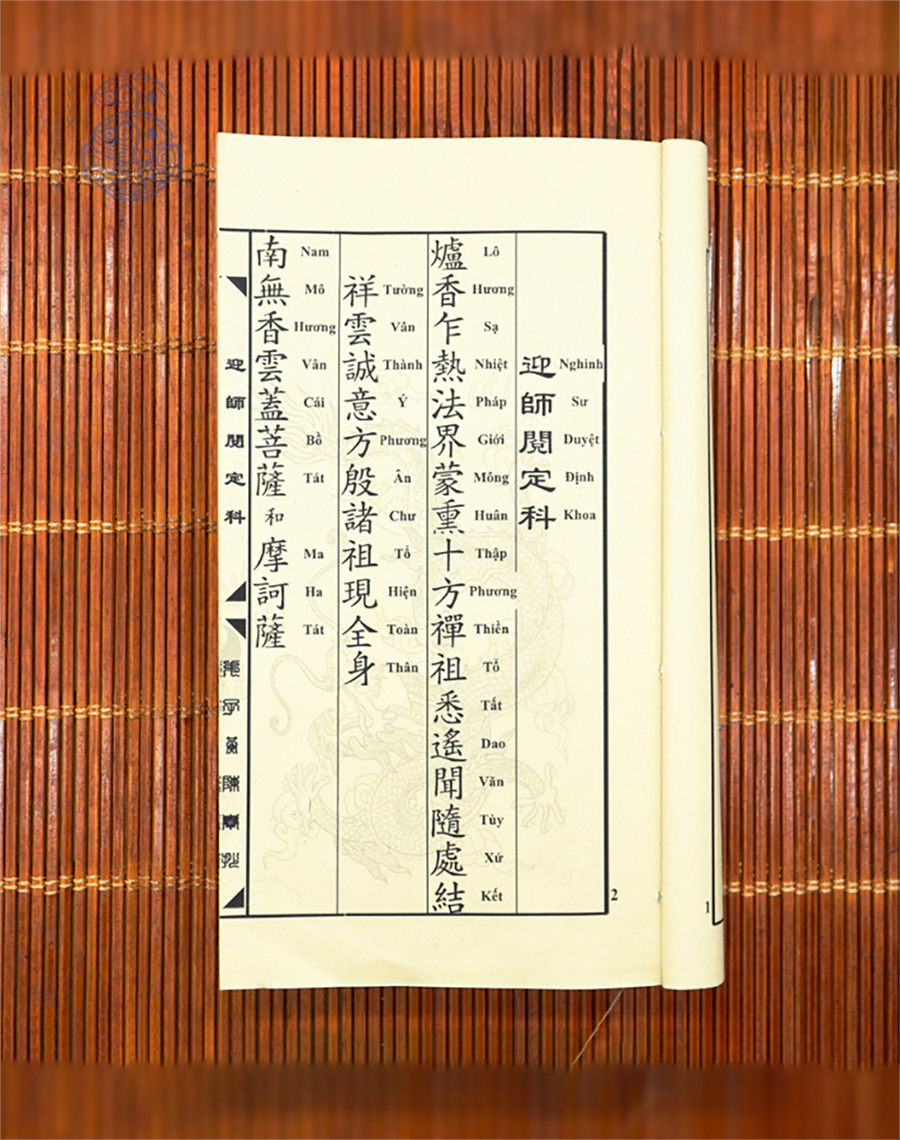 迎師閱定科
Nghinh Sư Duyệt Định Khoa
爐香乍熱法界蒙熏十方禪祖悉遙聞隨處結
Lô Hương Sạ Nhiệt Pháp Giới Mông Huân Thập Phương Thiền Tổ Tất Dao Văn Tùy Xứ Kết
祥雲誠意方殷諸祖現全身
Tường Vân Thành Ý Phương Ân Chư Tổ Hiện Toàn Thân
南無香雲蓋菩薩和摩訶薩
Nam Mô Hương Vân Cái Bồ Tát Ma Ha Tát
迎師閱定科
2
1